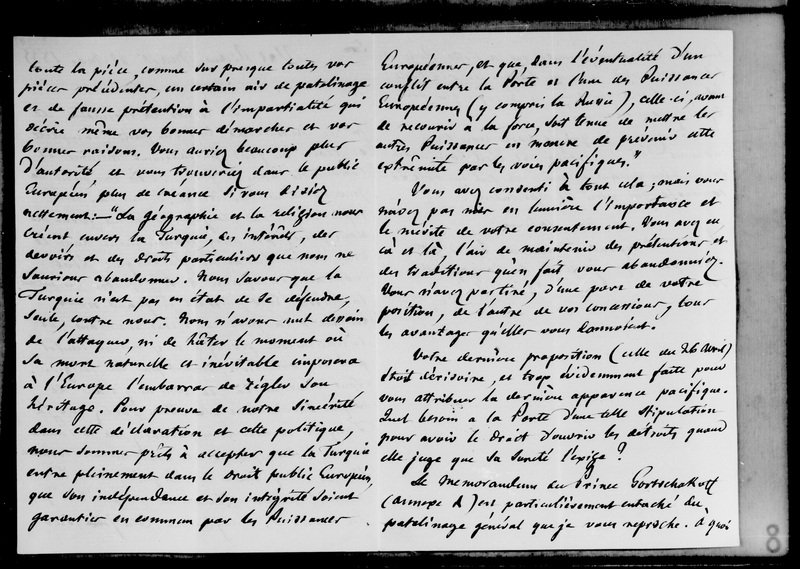 toute la pièce, comme sur presque toutes vos
pièces précédentes, un certain air de patelinage
et de fausse prétention à l'impartialité qui
décrie même vos bonnes démarches et vos
bonnes raisons. Vous auriez beaucoup plus
d'autorité et vous trouveriez dans le public
Européen plus de créance si vous disiez
nettement:— La géographie et la religion nous
créent envers la Turquie, des intérêts, des
devoirs et des droits particuliers que nous ne
saurions abandonner. Nous savons que la
Turquie n'est pas en état de se défendre,
seule, contre nous. Nous n'avons nul dessein
de l'attaquer, ni de hâter le moment où
sa mort naturelle et inévitable imposera
à l'Europe l'embarras de régler son
héritage. Pour preuve de notre sincérité
dans cette déclaration et cette politique,
nous sommes prêts à accepter que la Turquie
entre pleinement dans le droit public Européen,
que son indépendance et son intégrité soient
garanties en commun par les Puissances
Européennes, et que, dans l'éventualité d'un
conflit entre la Porte et l'une des Puissances
Européennes (y compris la Russie), celle-ci, avant
de recourir à la force, soit tenue de mettre les
autres Puissances en mesure de prévenir cette
extrêmité par les voies pacifiques."
Vous avez consenti à tout cela; mais vous
n'avez pas mis en lumière l'importance et
le mérite de votre consentement. Vous avez eu
çà et là, l'air de maintenir des prétentions et
des traditions qu'en fait vous abandonniez.
Vous n'avez pas tiré, d'une part de votre
position, de l'autre de vos concessions, tous
les avantages qu'elles vous donnoient.
Votre dernière proposition (celle du 26 Avril)
étoit dérisoire, et trop évidemment faite pour
vous attribuer la dernière apparence pacifique.
Quel besoin a la Porte d'une telle stipulation
pour avoir le droit d'ouvrir les détroits quand
elle juge que sa sureté l'exige?
Le Memorandum du Prince Gortschakoff
(annexe A) est particulièrement entaché du
patelinage général que je vous reproche. À quoi
8